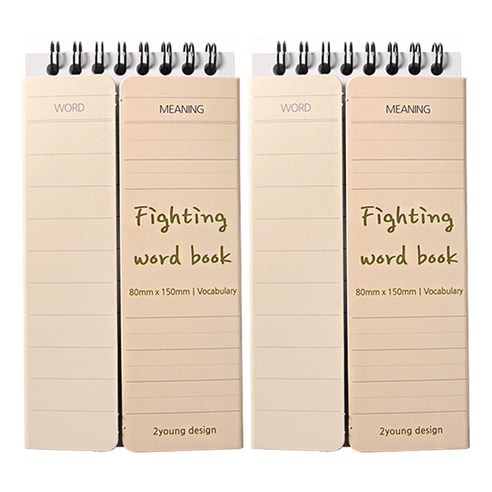 WORD
MEANING
Fighting
word book
80mm x 150mm | Vocabulary
2young design
WORD
MEANING
Fighting
word book
80mm x 150mm | Vocabulary
2young design